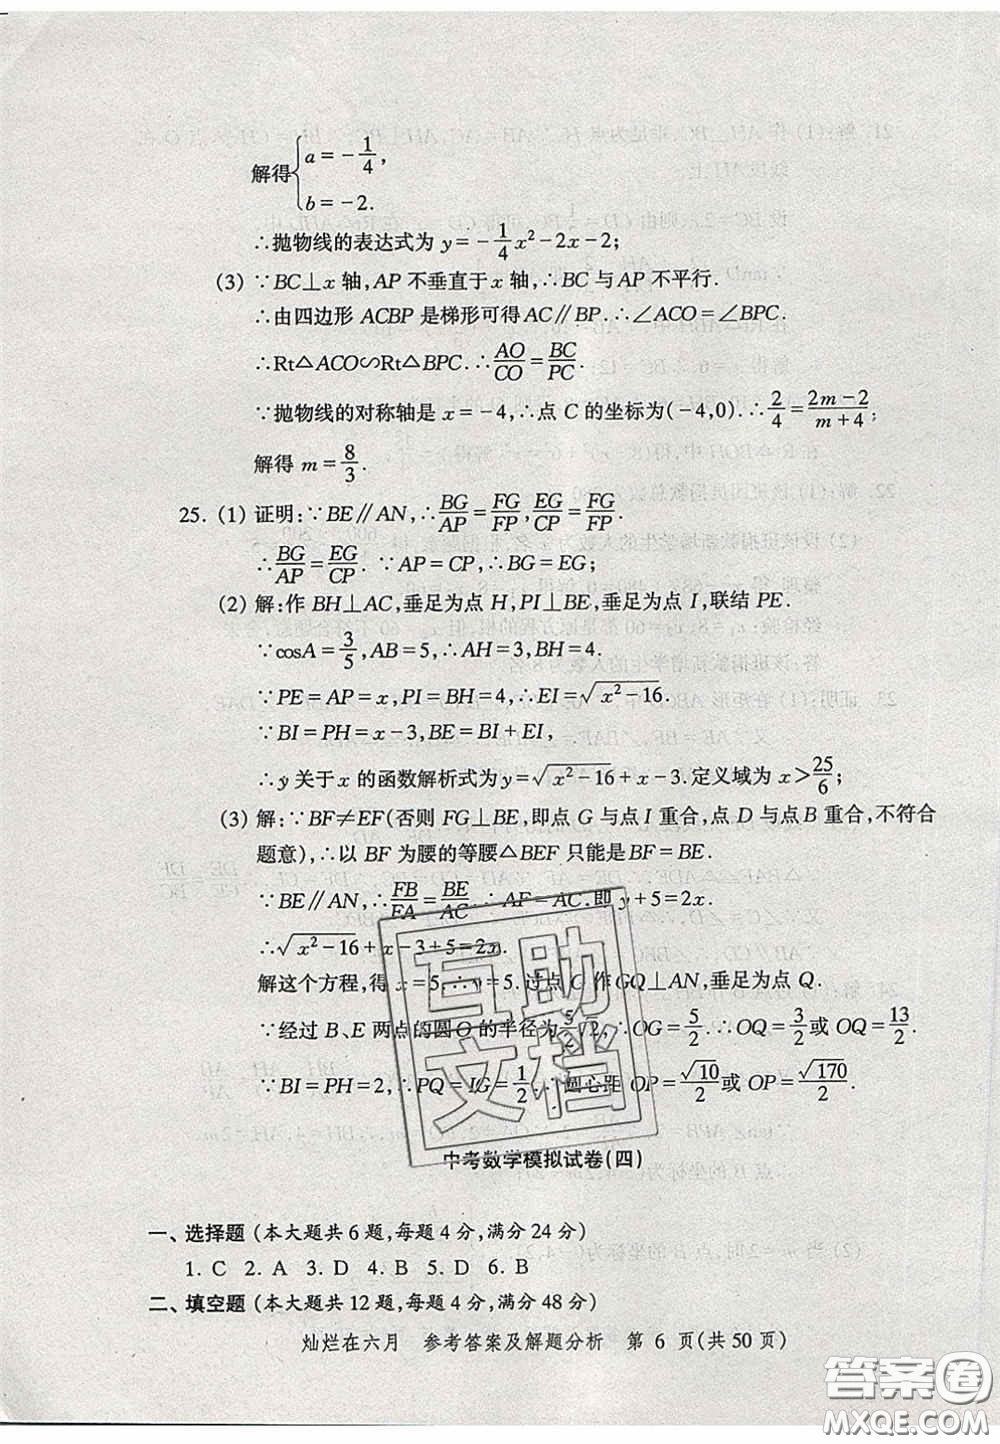 解得{a=-1/4,
b=-2.
∴抛物线的表达式为 y=-1/4x²-2x-2;
(3) ∵BC⊥x 轴,AP 不垂直于 x 轴,∴BC 与 AP 不平行.
∴由四边形 ACBP 是梯形可得 AC∥BP. ∴∠ACO=∠BPC.
∴Rt△ACO∽Rt△BPC. ∴AO/CO=BC/PC.
∵抛物线的对称轴是 x=-4,∴点 C 的坐标为(-4,0). ∴2/4=(2m-2)/(m+4);
解得 m=8/3.
25. (1) 证明:∵BE∥AN,∴BG/AP=FG/FP,EG/CP=FG/FP.
∴BG/AP=EG/CP. ∵AP=CP,∴BG=EG;
(2) 解:作 BH⊥AC,垂足为点 H,PI⊥BE,垂足为点 I,联结 PE.
∵cosA=3/5,AB=5,∴AH=3,BH=4.
∵PE=AP=x,PI=BH=4,∴EI=√(x²-16).
∵BI=PH=x-3,BE=BI+EI,
∴y 关于 x 的函数解析式为 y=√(x²-16)+x-3.定义域为 x>25/6;
(3) 解:∵BF≠EF(否则 FG⊥BE,即点 G 与点 I 重合,点 D 与点 B 重合,不符合
题意),∴以 BF 为腰的等腰△BEF 只能是 BF=BE.
∵BE∥AN,∴FB/FA=BE/AC. ∴AF=AC,即 y+5=2x.
∴√(x²-16)+x-3+5=2x.
解这个方程,得 x=5,∴y=5.过点 O 作 OQ⊥AN,垂足为点 Q.
∵经过 B、E 两点的圆 O 的半径为5/2√2,∴OG=5/2. ∴OQ=3/2或 OQ=13/2.
∵BI=PH=2,∴PQ=IG=1/2. ∴圆心距 OP=√10/2或 OP=√170/2.
互助
文档
中考数学模拟试卷(四)
一、选择题(本大题共 6 题,每题 4 分,满分 24 分)
1. C 2. A 3. D 4. B 5. D 6. B
二、填空题(本大题共 12 题,每题 4 分,满分 48 分)
灿烂在六月 参考答案及解题分析 第 6 页(共 50 页)
答案圈
MXQE.COM